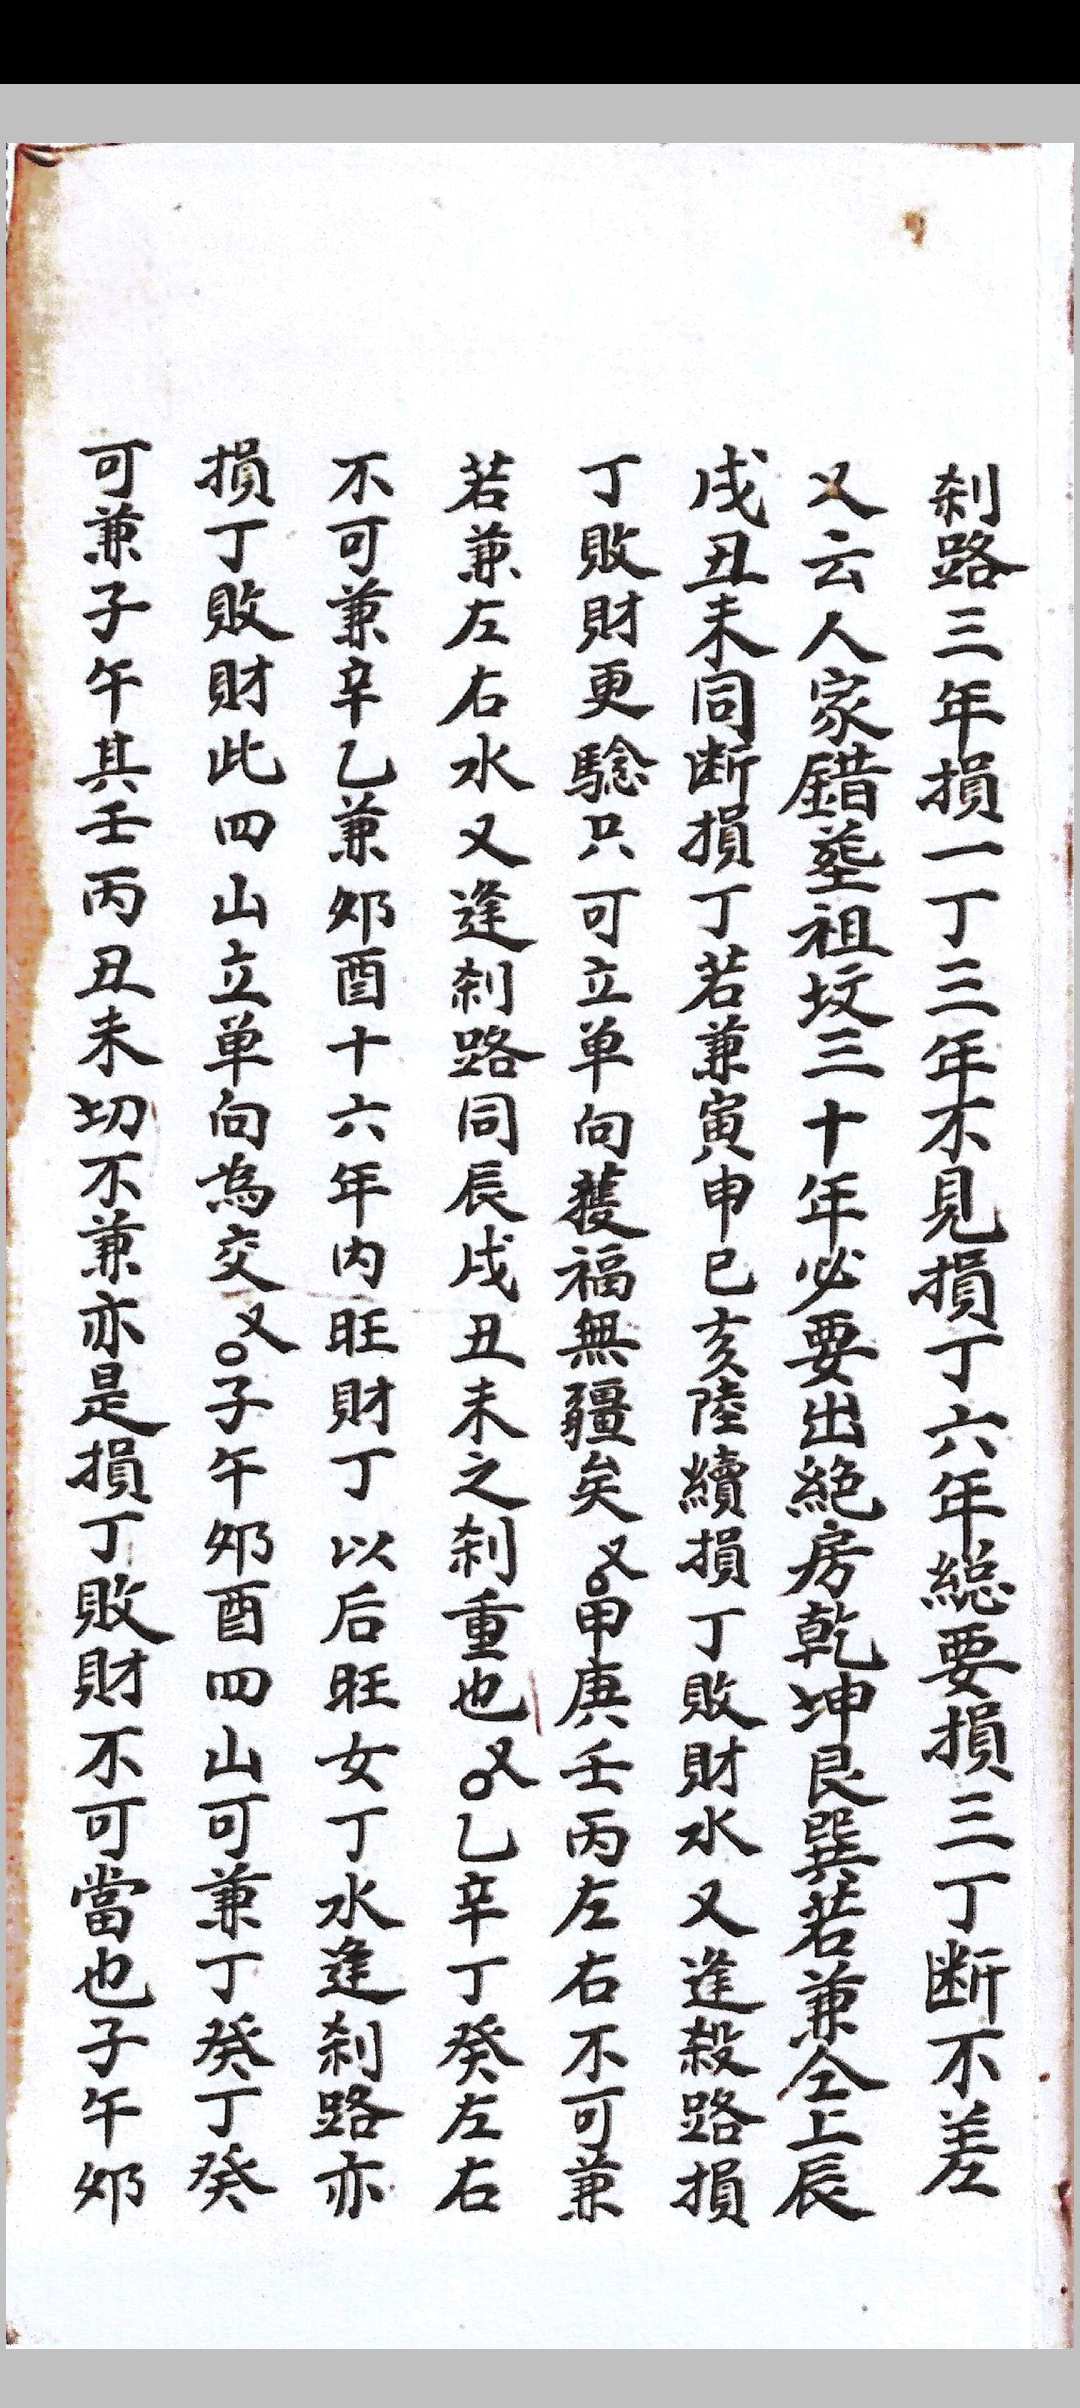 刹路三年損一丁三年不見損丁六年総要損三丁断不差
又云人家錯塟祖坟三十年必要出絶房乾坤艮巽若兼仝上辰
戌丑未同断損丁若兼寅申巳亥陸續損丁敗財水又逢殺路損
丁敗財更騐只可立单向獲福無疆矣又甲庚壬丙左右不可兼
若兼左右水又逢刹路同辰戌丑未之刹重也又乙辛丁癸左右
不可兼辛乙兼夘酉十六年内旺財丁以后旺女丁水逢刹路亦
損丁敗財此四山立单向為交又子午夘酉四山可兼丁癸丁癸
可兼子午其壬丙丑未切不兼亦是損丁敗財不可當也子午夘